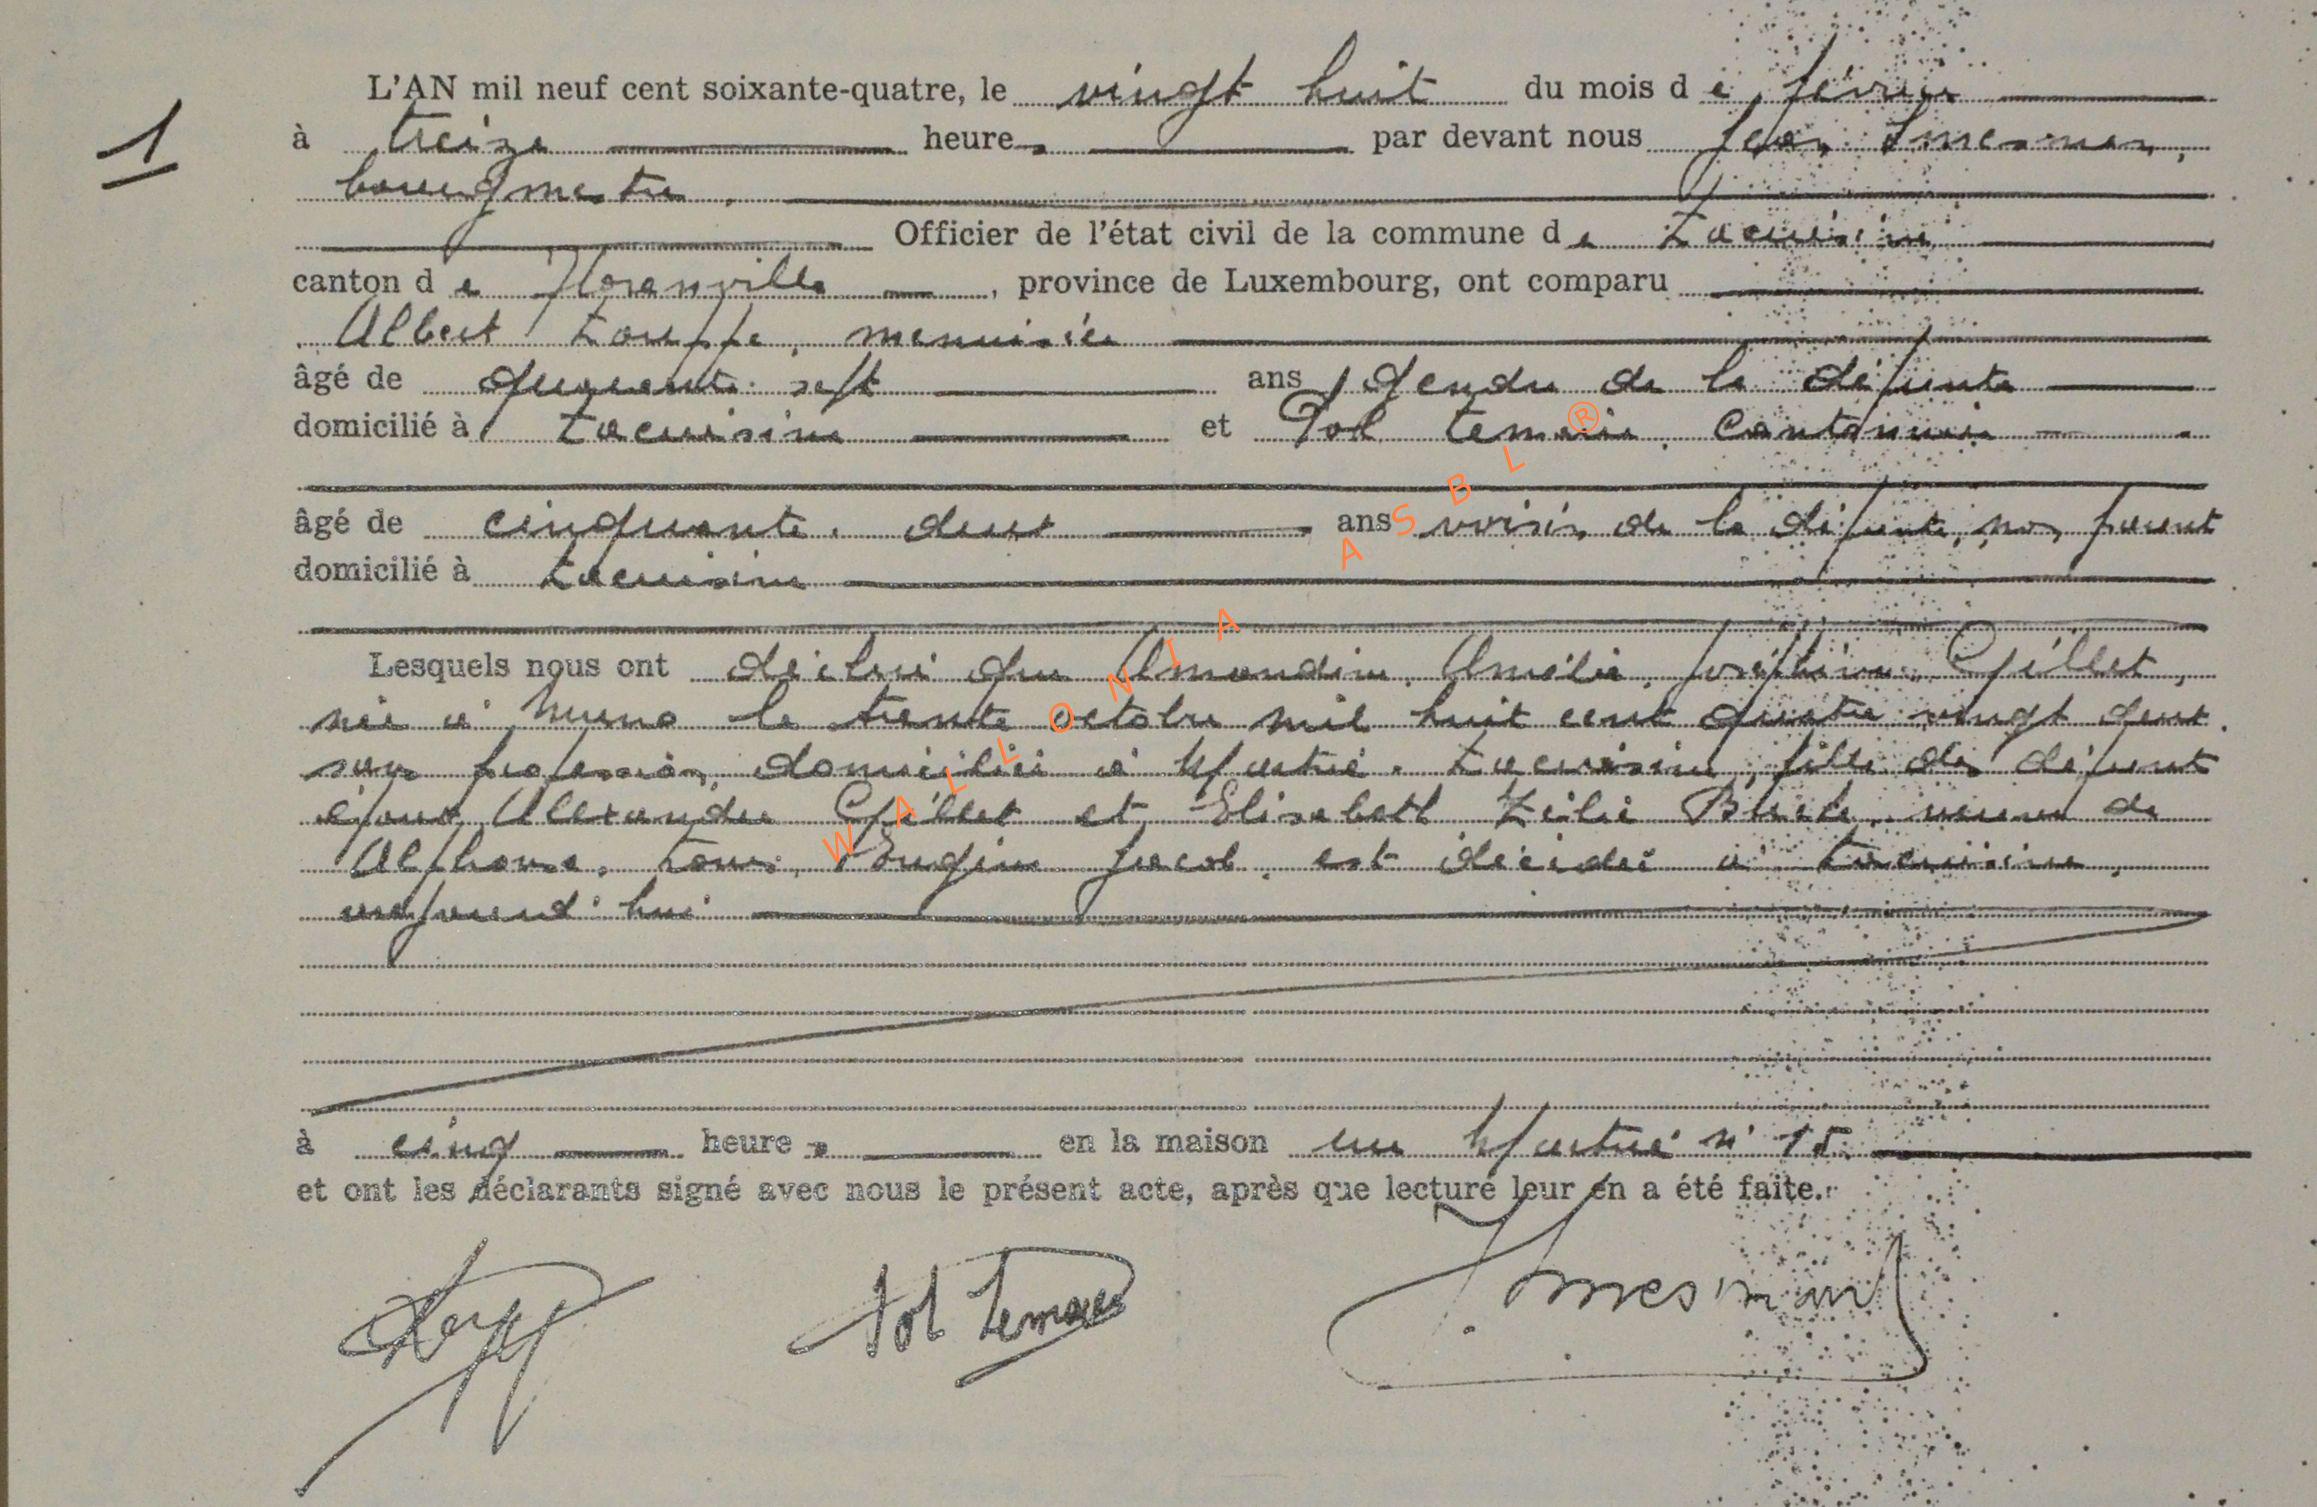 1
L'AN mil neuf cent soixante-quatre, le vingt huit du mois de février
à treize heures par devant nous Jean
bourgmestre,
Officier de l'état civil de la commune de Lacuisine
canton de Florenville, province de Luxembourg, ont comparu
Albert Louppe, menuisier
âgé de quarante-sept ans, gendre de la défunte
domicilié à Lacuisine et Pol Lemaire, cantonnier
âgé de cinquante-deux ans voisin de la défunte, non parent
domicilié à Lacuisine
Lesquels nous ont déclaré que Amandine, Amélie, Joséphine Gillet,
née à Muno le trente octobre mil huit cent quatre vingt deux,
sans profession, domiciliée à Lacuisine, fille des défunts
époux Alexandre Gillet et Elisabeth Zélie veuve de
Alphonse, Louis, Eugène Jacob, est décédée à Lacuisine,
aujourd'hui
à cinq heures en la maison rue n° 15
et ont les déclarants signé avec nous le présent acte, après que lecture leur en a été faite.
Pol Lemaire
WALLONIA ASBL ®